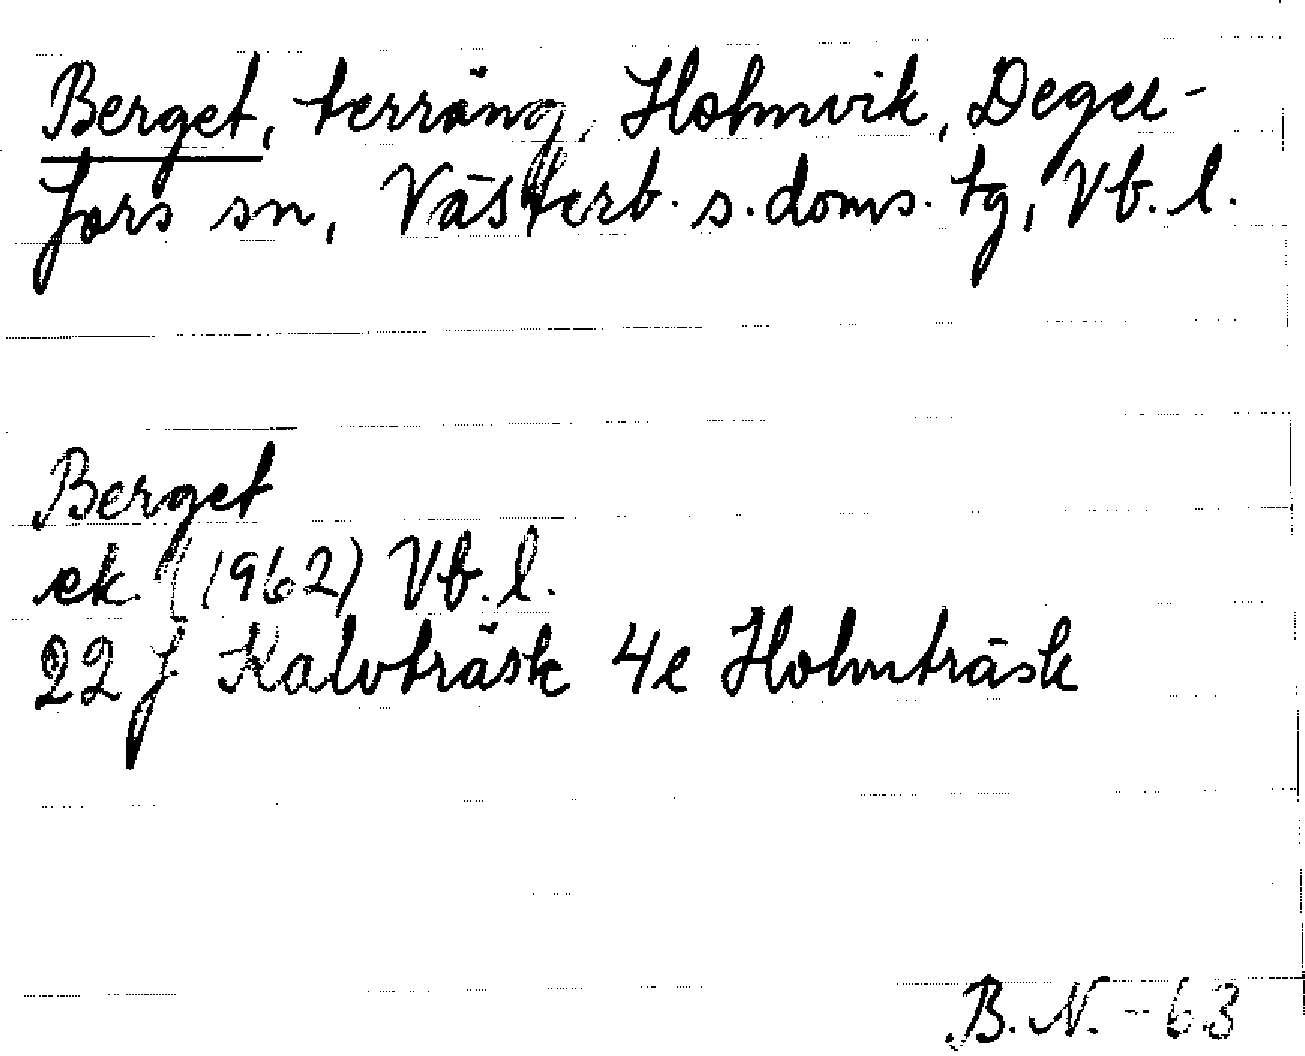 Berget, terräng, Holmvik, Deger-
fors sn, Västerb. s. doms. tg, Vb. l.
Berget
ek. (1962) Vb. l.
22 J Kalvträsk 4e Holmträsk
B. N. - 63